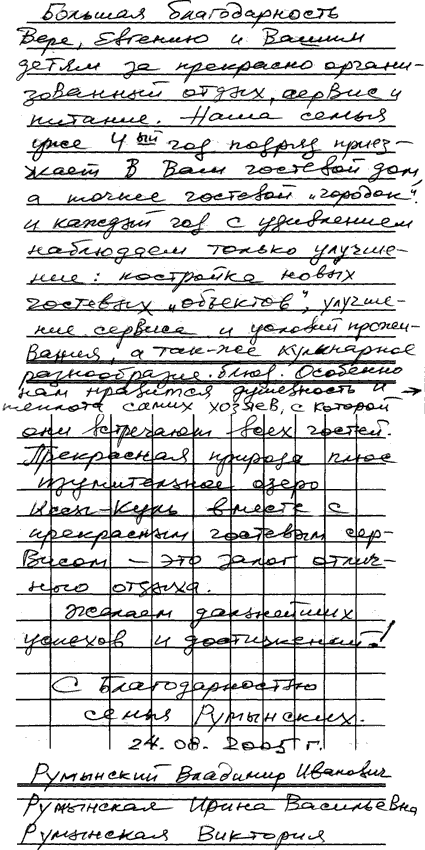 Большая благодарность
Вере, Евгению и Вашим
детям за прекрасно органи-
зованный отдых, сервис и
питание. Наша семья
уже 4ый год подряд приез-
жает в Ваш гостевой дом,
а точнее гостевой „городок".
и каждый год с удивлением
наблюдаем только улучше-
ние: постройка новых
гостевых „объектов", улучше-
ние сервиса и условий прожи-
вания, а так-же кулинарное
разнообразие блюд. Особенно
нам нравится душевность и →
теплота самих хозяев, с которой
они встречают всех гостей.
Прекрасная природа плюс
изумительное озеро
Иссык-Куль вместе с
прекрасным гостевым сер-
висом — это залог отлич-
ного отдыха.
Желаем дальнейших
успехов и достижений!
С благодарностью
семья Румынских.
24.08.2005 г.
Румынский Владимир Иванович
Румынская Ирина Васильевна
Румынская Виктория